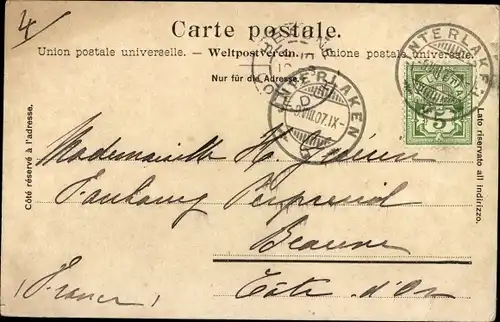 4
Carte postale.
Union postale universelle. – Weltpostverein. – Unione postale universale.
Nur für die Adresse.
INTERLAKEN
VIII.07.IX
INTERLAKEN
VIII.07
5
Côté réservé à l'adresse.
Lato riservato all indirizzo.
Mademoiselle H.
Faubourg Perpreuil
Beaune
Côte d'Or
(France)